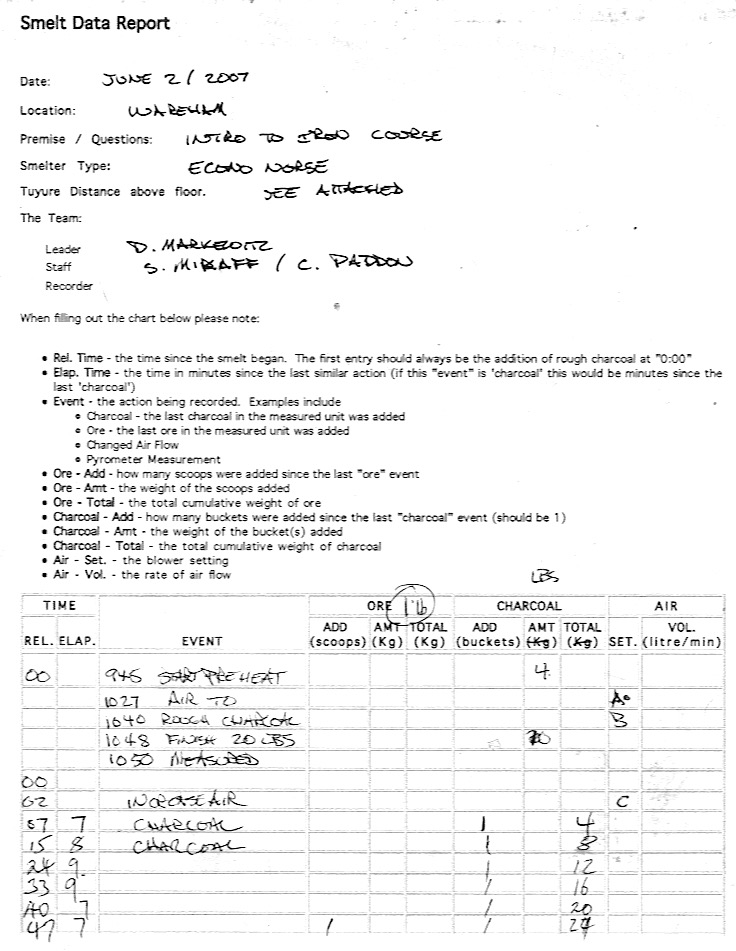 Smelt Data Report
Date: JUNE 2 / 2007
Location: WAREHAM
Premise / Questions: INTRO TO IRON COURSE
Smelter Type: ECONO NORSE
Tuyure Distance above floor. SEE ATTACHED
The Team:
Leader D. MARKEWITZ
Staff S. / C. PADDON
Recorder
When filling out the chart below please note:
• Rel. Time - the time since the smelt began. The first entry should always be the addition of rough charcoal at "0:00"
• Elap. Time - the time in minutes since the last similar action (if this "event" is 'charcoal' this would be minutes since the
last 'charcoal')
• Event - the action being recorded. Examples include
• Charcoal - the last charcoal in the measured unit was added
• Ore - the last ore in the measured unit was added
• Changed Air Flow
• Pyrometer Measurement
• Ore - Add - how many scoops were added since the last "ore" event
• Ore - Amt - the weight of the scoops added
• Ore - Total - the total cumulative weight of ore
• Charcoal - Add - how many buckets were added since the last "charcoal" event (should be 1)
• Charcoal - Amt - the weight of the bucket(s) added
• Charcoal - Total - the total cumulative weight of charcoal
• Air - Set. - the blower setting
• Air - Vol. - the rate of air flow
LBS
TIME ORE 1 lb CHARCOAL AIR
ADD AMT TOTAL ADD AMT TOTAL VOL.
REL. ELAP. EVENT (scoops) (Kg) (Kg) (buckets) (Kg) (Kg) SET. (litre/min)
00 945 START PREHEAT 4
1027 AIR TO A
1040 ROUGH CHARCOAL B
1048 FINISH 20 LBS 20
1050 MEASURED
00
02 INCREASE AIR C
07 7 CHARCOAL 1 4
15 8 CHARCOAL 1 8
24 9 1 12
33 9 1 16
40 7 1 20
47 7 1 1 24